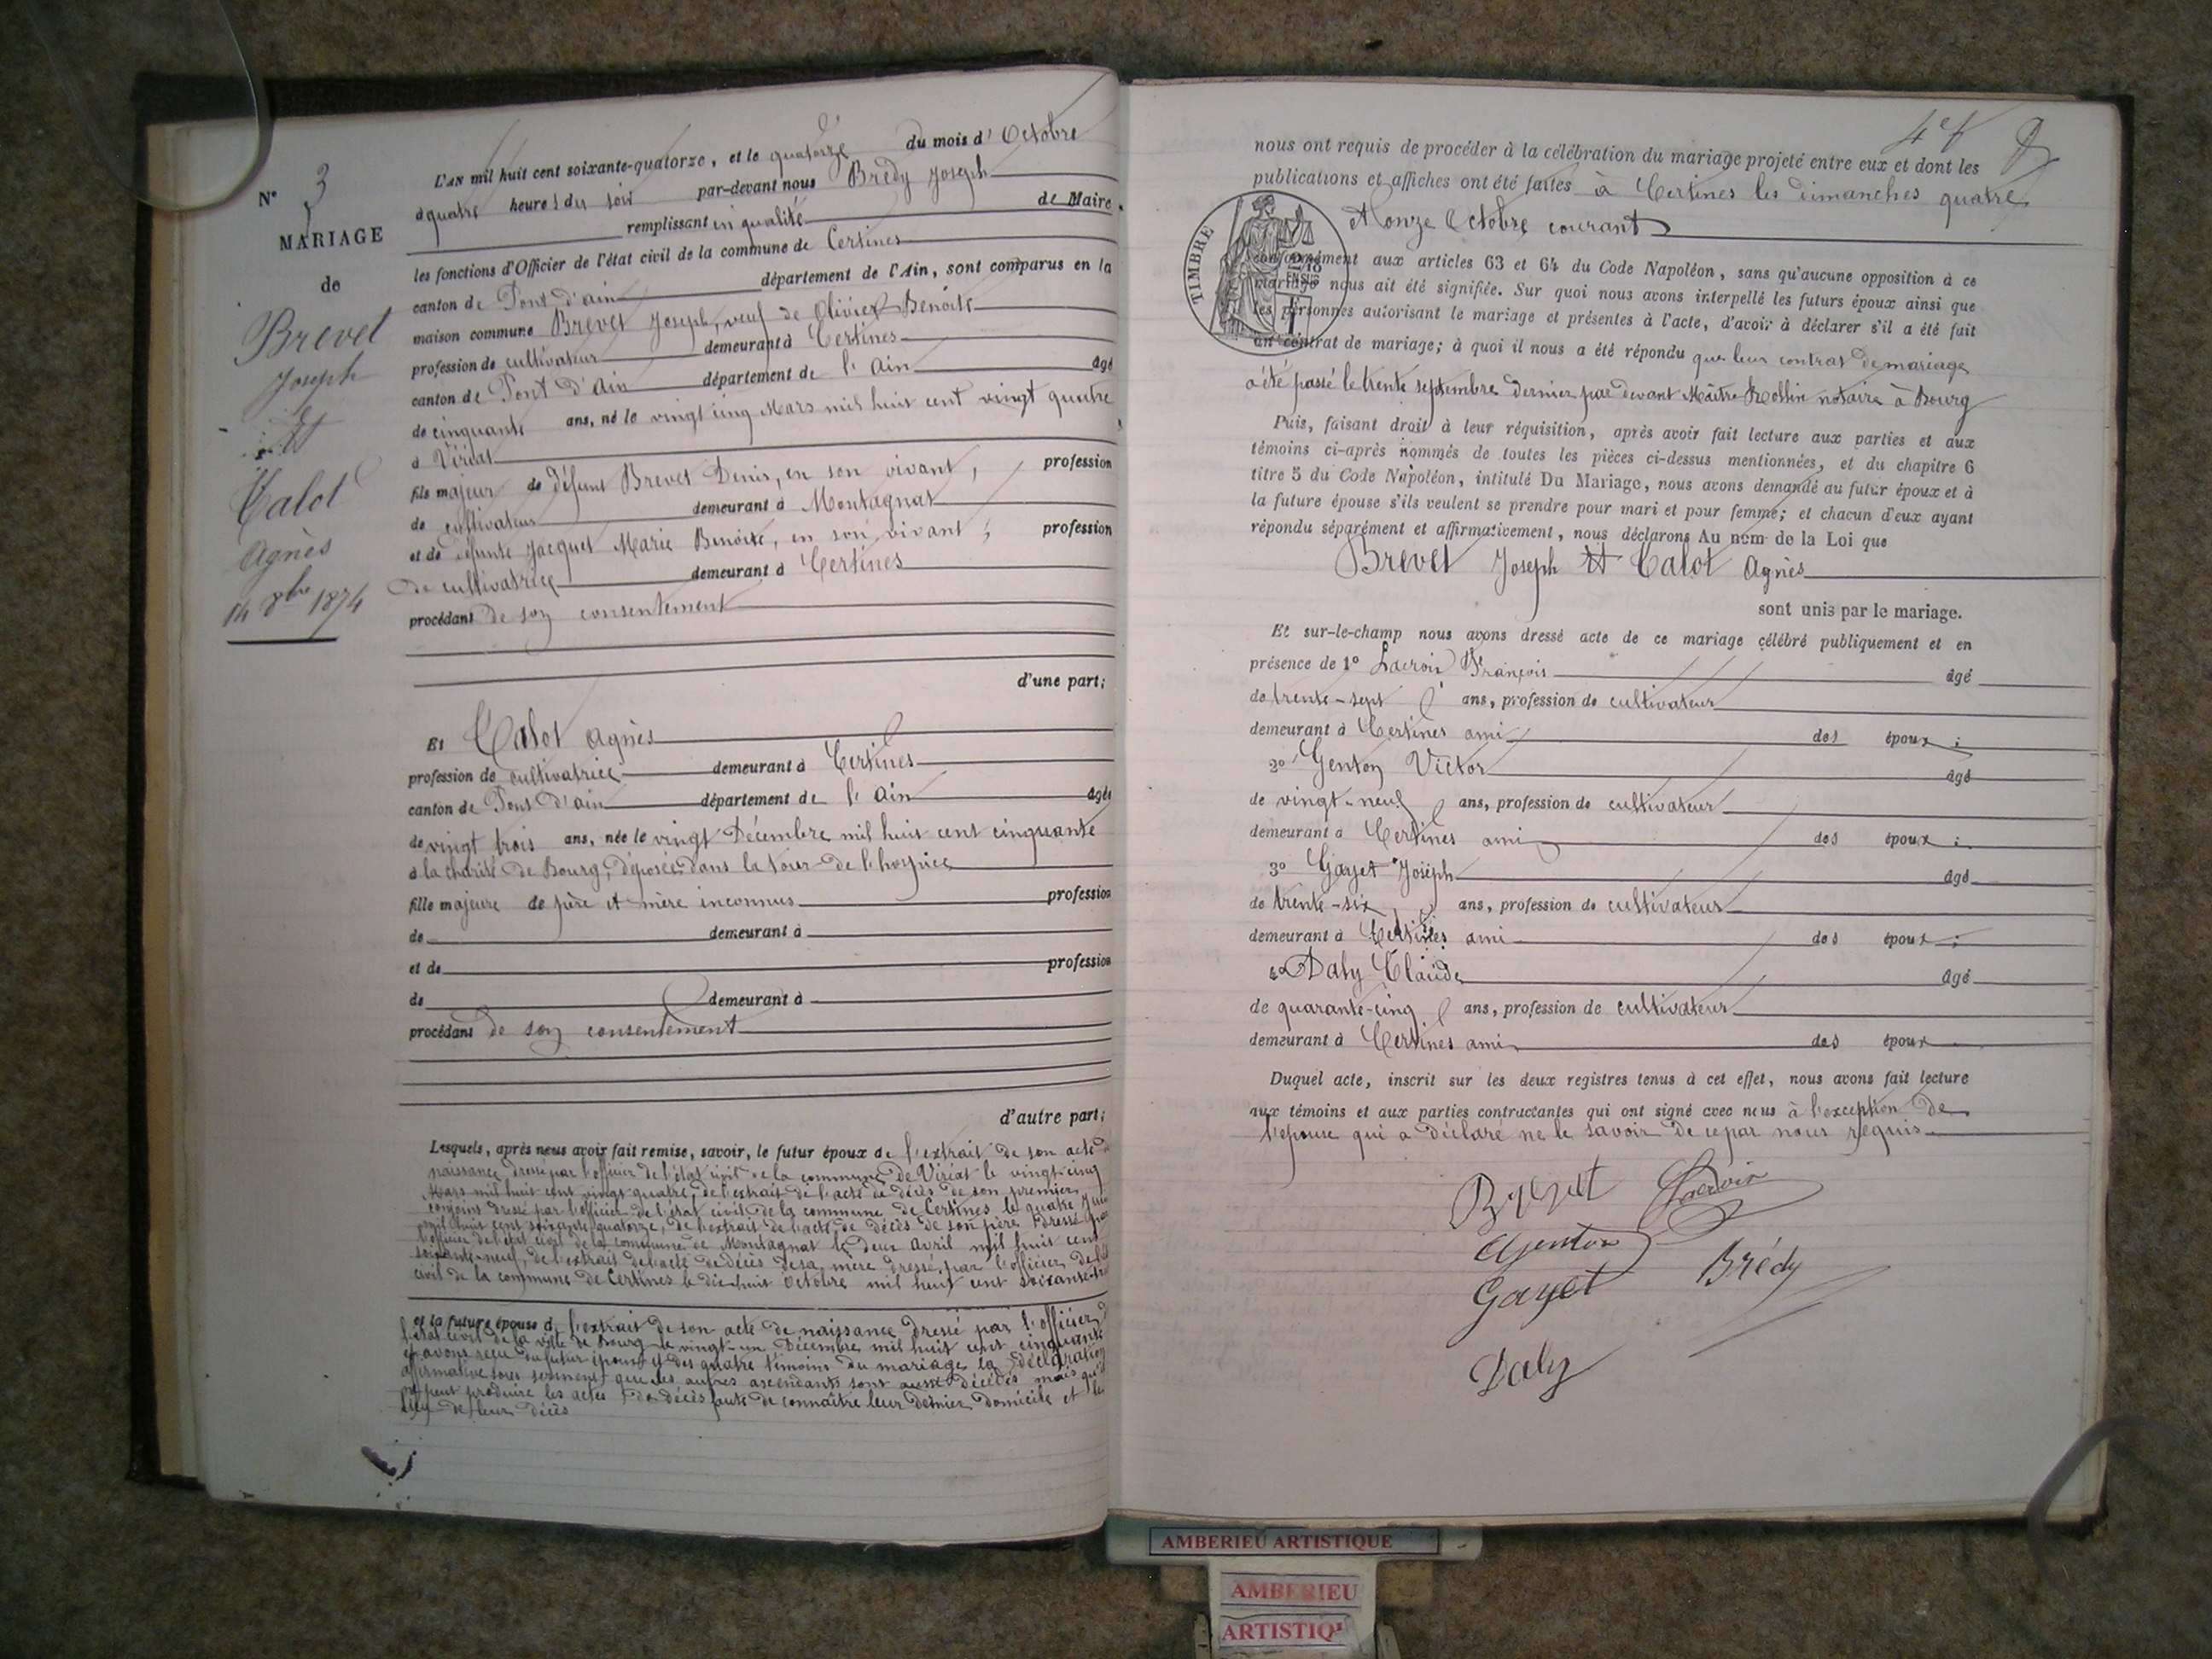 N° 3
MARIAGE
de
Brevet
Joseph
Et
Calot
Agnès
14 8bre 1874
L'AN mil huit cent soixante-quatorze, et le quatorze du mois d'Octobre
à quatre heures du soir par-devant nous Brédy Joseph
remplissant en qualité de Maire
les fonctions d'Officier de l'état civil de la commune de Certines
canton de Pont d'ain département de l'Ain, sont comparus en la
maison commune Brevet Joseph, veuf de Olivier Benoite
profession de cultivateur demeurant à Certines
canton de Pont d'ain département de l'ain âgé
de cinquante ans, né le vingt cinq Mars mil huit cent vingt quatre
à Viriat
fils majeur de défunt Brevet Denis, en son vivant, profession
de cultivateur demeurant à Montagnat
et de défunte Jacquet Marie Benoite, en son vivant, profession
de cultivatrice demeurant à Certines
procédant de son consentement
d'une part;
Et Calot Agnès
profession de cultivatrice demeurant à Certines
canton de Pont d'ain département de l'ain âgée
de vingt trois ans, née le vingt Décembre mil huit cent cinquante
à la charité de Bourg, déposée dans la tour de l'hospice
fille majeure de père et mère inconnus profession
de demeurant à
et de profession
de demeurant à
procédant de son consentement
d'autre part;
Lesquels, après nous avoir fait remise, savoir, le futur époux de l'extrait de son acte de
naissance dressé par l'officier de l'état civil de la commune de Viriat le vingt-cinq
Mars mil huit cent vingt quatre, de l'extrait de l'acte de décès de son premier
conjoint dressé par l'officier de l'état civil de la commune de Certines le quatre
mil huit cent soixante quatorze, de l'extrait de l'acte de décès de son père dressé par
l'officier de l'état civil de la commune de Montagnat le deux avril mil huit cent
soixante-neuf, de l'extrait de l'acte de décès de sa mère dressé par l'officier de
civil de la commune de Certines le dix-huit Octobre mil huit cent
et la future épouse d l'extrait de son acte de naissance dressé par l'officier
l'état civil de la ville de Bourg le vingt-un Décembre mil huit cent cinquante
et avons reçu du futur époux et des quatre témoins du mariage la déclaration
affirmative sous serment que les autres ascendants sont aussi décédés mais qu'il
ne peut produire les actes de décès faute de connaître leur dernier domicile et le
lieu de leur décès
nous ont requis de procéder à la célébration du mariage projeté entre eux et dont les
publications et affiches ont été faites à Certines les dimanches quatre
et onze Octobre courant
TIMBRE
conformément aux articles 63 et 64 du Code Napoléon, sans qu'aucune opposition à ce
mariage nous ait été signifiée. Sur quoi nous avons interpellé les futurs époux ainsi que
les personnes autorisant le mariage et présentes à l'acte, d'avoir à déclarer s'il a été fait
un contrat de mariage; à quoi il nous a été répondu que leur contrat de mariage
a été passé le trente septembre dernier par devant Maître Rollin notaire à Bourg
Puis, faisant droit à leur réquisition, après avoir fait lecture aux parties et aux
témoins ci-après nommés de toutes les pièces ci-dessus mentionnées, et du chapitre 6
titre 5 du Code Napoléon, intitulé Du Mariage, nous avons demandé au futur époux et à
la future épouse s'ils veulent se prendre pour mari et pour femme; et chacun d'eux ayant
répondu séparément et affirmativement, nous déclarons Au nom de la Loi que
Brevet Joseph Et Calot Agnès
sont unis par le mariage.
Et sur-le-champ nous avons dressé acte de ce mariage célébré publiquement et en
présence de 1° Lacroix François âgé
de trente-sept ans, profession de cultivateur
demeurant à Certines ami des époux ;
2° Genton Victor âgé
de vingt-neuf ans, profession de cultivateur
demeurant à Certines ami des époux ;
3° Gayet Joseph âgé
de trente-six ans, profession de cultivateur
demeurant à Certines ami des époux ;
4° Daly Claude âgé
de quarante-cinq ans, profession de cultivateur
demeurant à Certines ami des époux
Duquel acte, inscrit sur les deux registres tenus à cet effet, nous avons fait lecture
aux témoins et aux parties contractantes qui ont signé avec nous à l'exception de
l'épouse qui a déclaré ne le savoir de ce par nous requis
Brevet Lacroix
Genton
Gayet Brédy
Daly
AMBERIEU ARTISTIQUE
AMBERIEU
ARTISTIQ